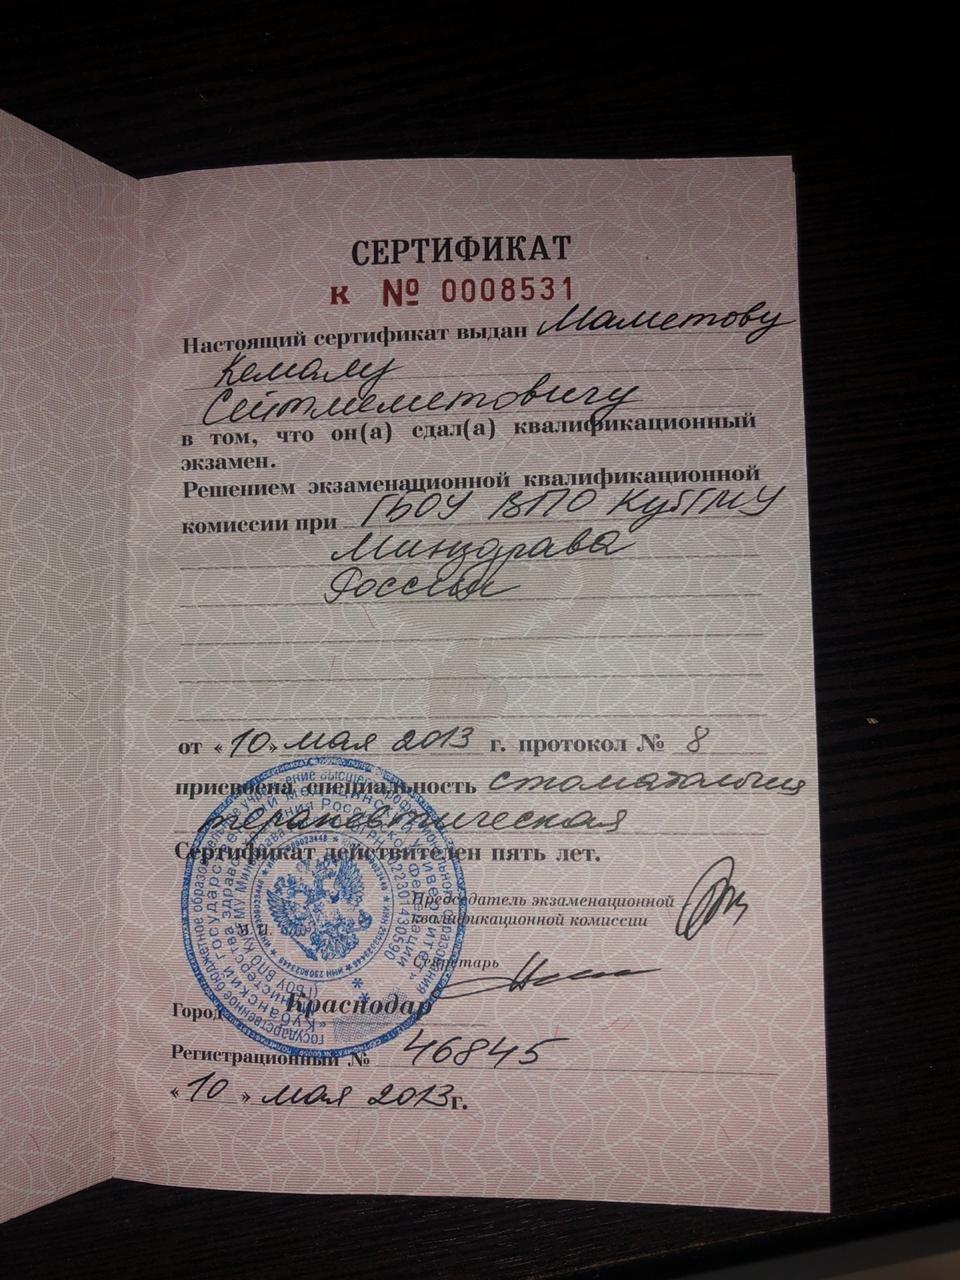 СЕРТИФИКАТ
К № 0008531
Настоящий сертификат выдан Маметову
Кемалу
Сейтмеметовичу
в том, что он(а) сдал(а) квалификационный
экзамен.
Решением экзаменационной квалификационной
комиссии при ГБОУ ВПО КубГМУ
Минздрава
России
от «10» мая 2013 г. протокол № 8
присвоена специальность стоматология
терапевтическая
Сертификат действителен пять лет.
Председатель экзаменационной
квалификационной комиссии
М. П.
Секретарь
Город Краснодар
Регистрационный № 46845
«10» мая 2013г.